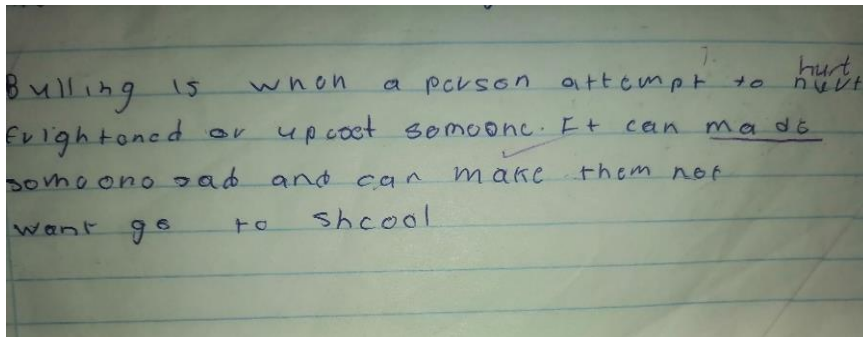 Bulling is when a person attempt to hurt hurt
frightened or upcet someone. It can made
someone sad and can make them not
want go to shcool